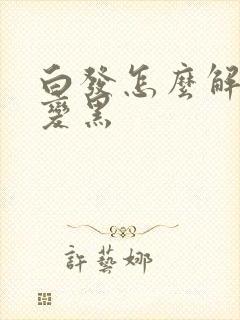 白發怎麼解
變黑
許藝娜